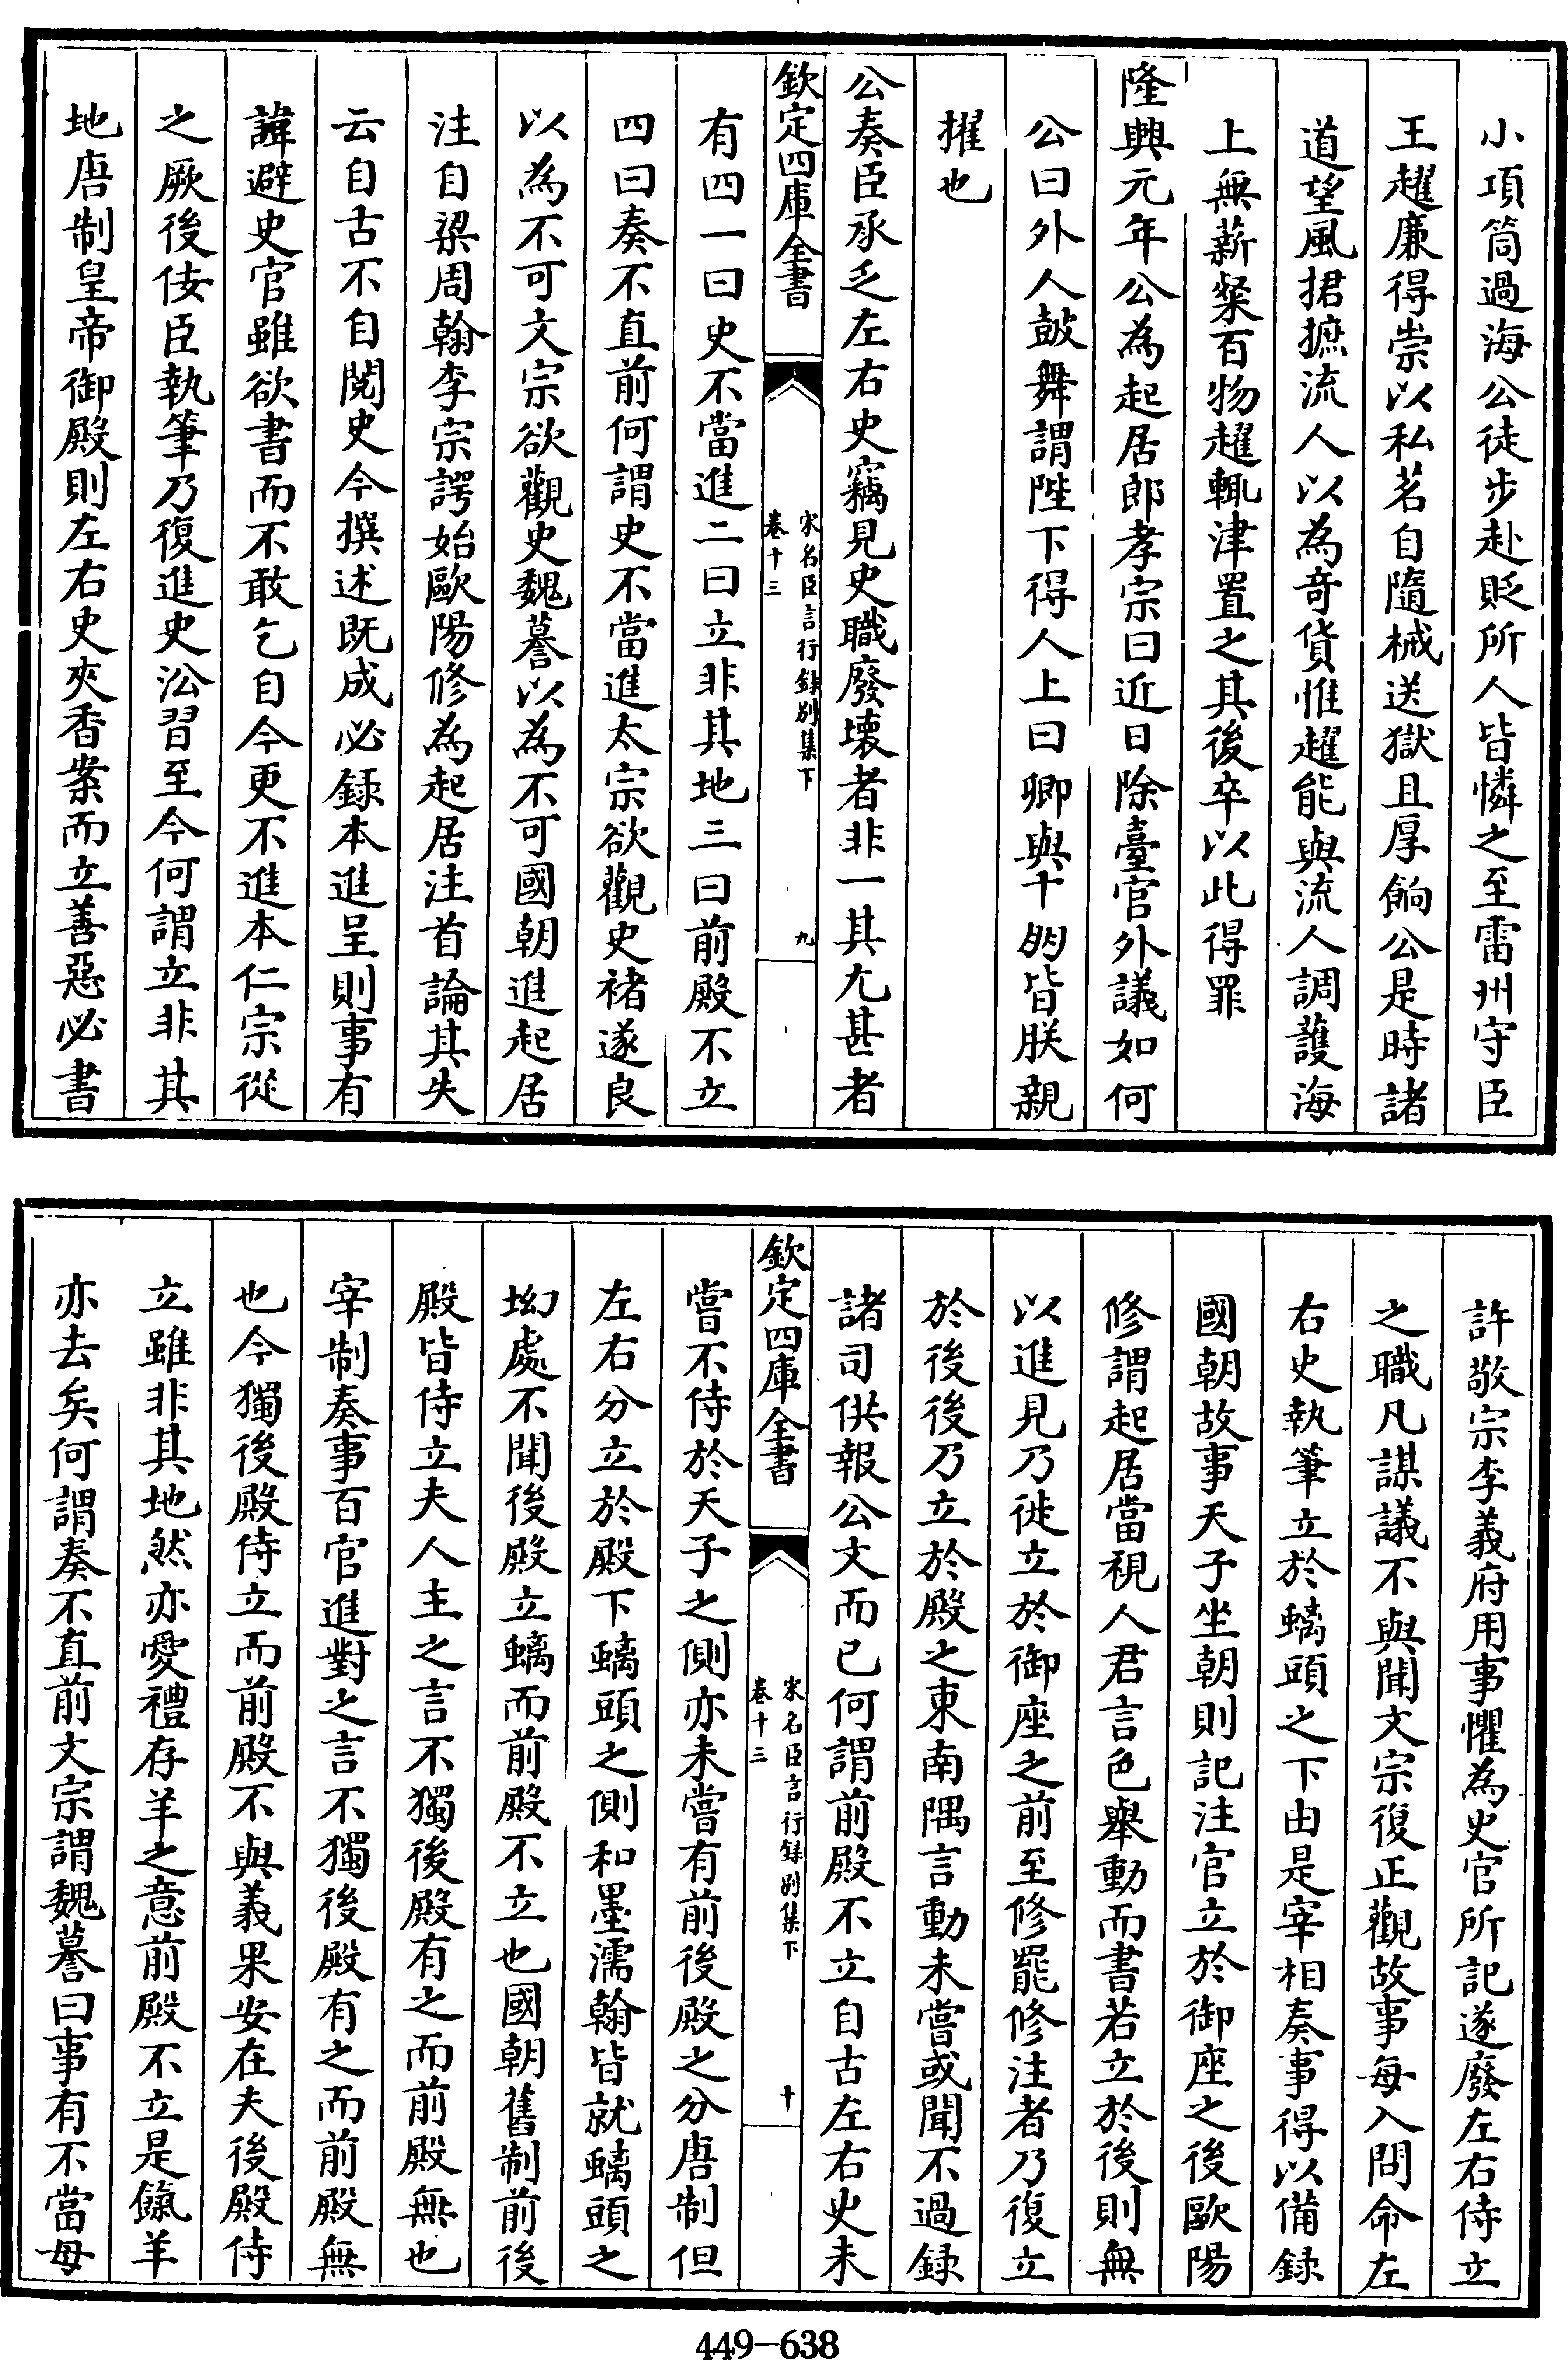 小項筒過海公徒步赴貶所人皆憐之至雷州守臣
王趯廉得崇以私茗自隨械送獄且厚餉公是時諸
道望風捃摭流人以為奇貨惟趯能與流人調護海
上無薪粲百物趯輒津置之其後卒以此得罪
隆興元年公為起居郎孝宗曰近日除臺官外議如何
公曰外人鼓舞謂陛下得人上曰卿與十朋皆朕親
擢也
公奏臣承乏左右史竊見史職廢壞者非一其尤甚者
欽定四庫全書
宋名臣言行録別集下
卷十三
九
有四一曰史不當進二曰立非其地三曰前殿不立
四曰奏不直前何謂史不當進太宗欲觀史褚遂良
以為不可文宗欲觀史魏謩以為不可國朝進起居
注自梁周翰李宗諤始歐陽修為起居注首論其失
云自古不自閱史今撰述既成必録本進呈則事有
諱避史官雖欲書而不敢乞自今更不進本仁宗從
之厥後佞臣執筆乃復進史沿習至今何謂立非其
地唐制皇帝御殿則左右史夾香案而立善惡必書
許敬宗李義府用事懼為史官所記遂廢左右侍立
之職凡謀議不與聞文宗復正觀故事每入閤命左
右史執筆立於螭頭之下由是宰相奏事得以備録
國朝故事天子坐朝則記注官立於御座之後歐陽
修謂起居當視人君言色舉動而書若立於後則無
以進見乃徙立於御座之前至修罷修注者乃復立
於後後乃立於殿之東南隅言動未嘗或聞不過録
諸司供報公文而已何謂前殿不立自古左右史未
欽定四庫全書
宋名臣言行録別集下
卷十三
十
嘗不侍於天子之側亦未嘗有前後殿之分唐制但
左右分立於殿下螭頭之側和墨濡翰皆就螭頭之
坳處不聞後殿立螭而前殿不立也國朝舊制前後
殿皆侍立夫人主之言不獨後殿有之而前殿無也
宰制奏事百官進對之言不獨後殿有之而前殿無
也今獨後殿侍立而前殿不與義果安在夫後殿侍
立雖非其地然亦愛禮存羊之意前殿不立是餼羊
亦去矣何謂奏不直前文宗謂魏謩曰事有不當毋
449-638